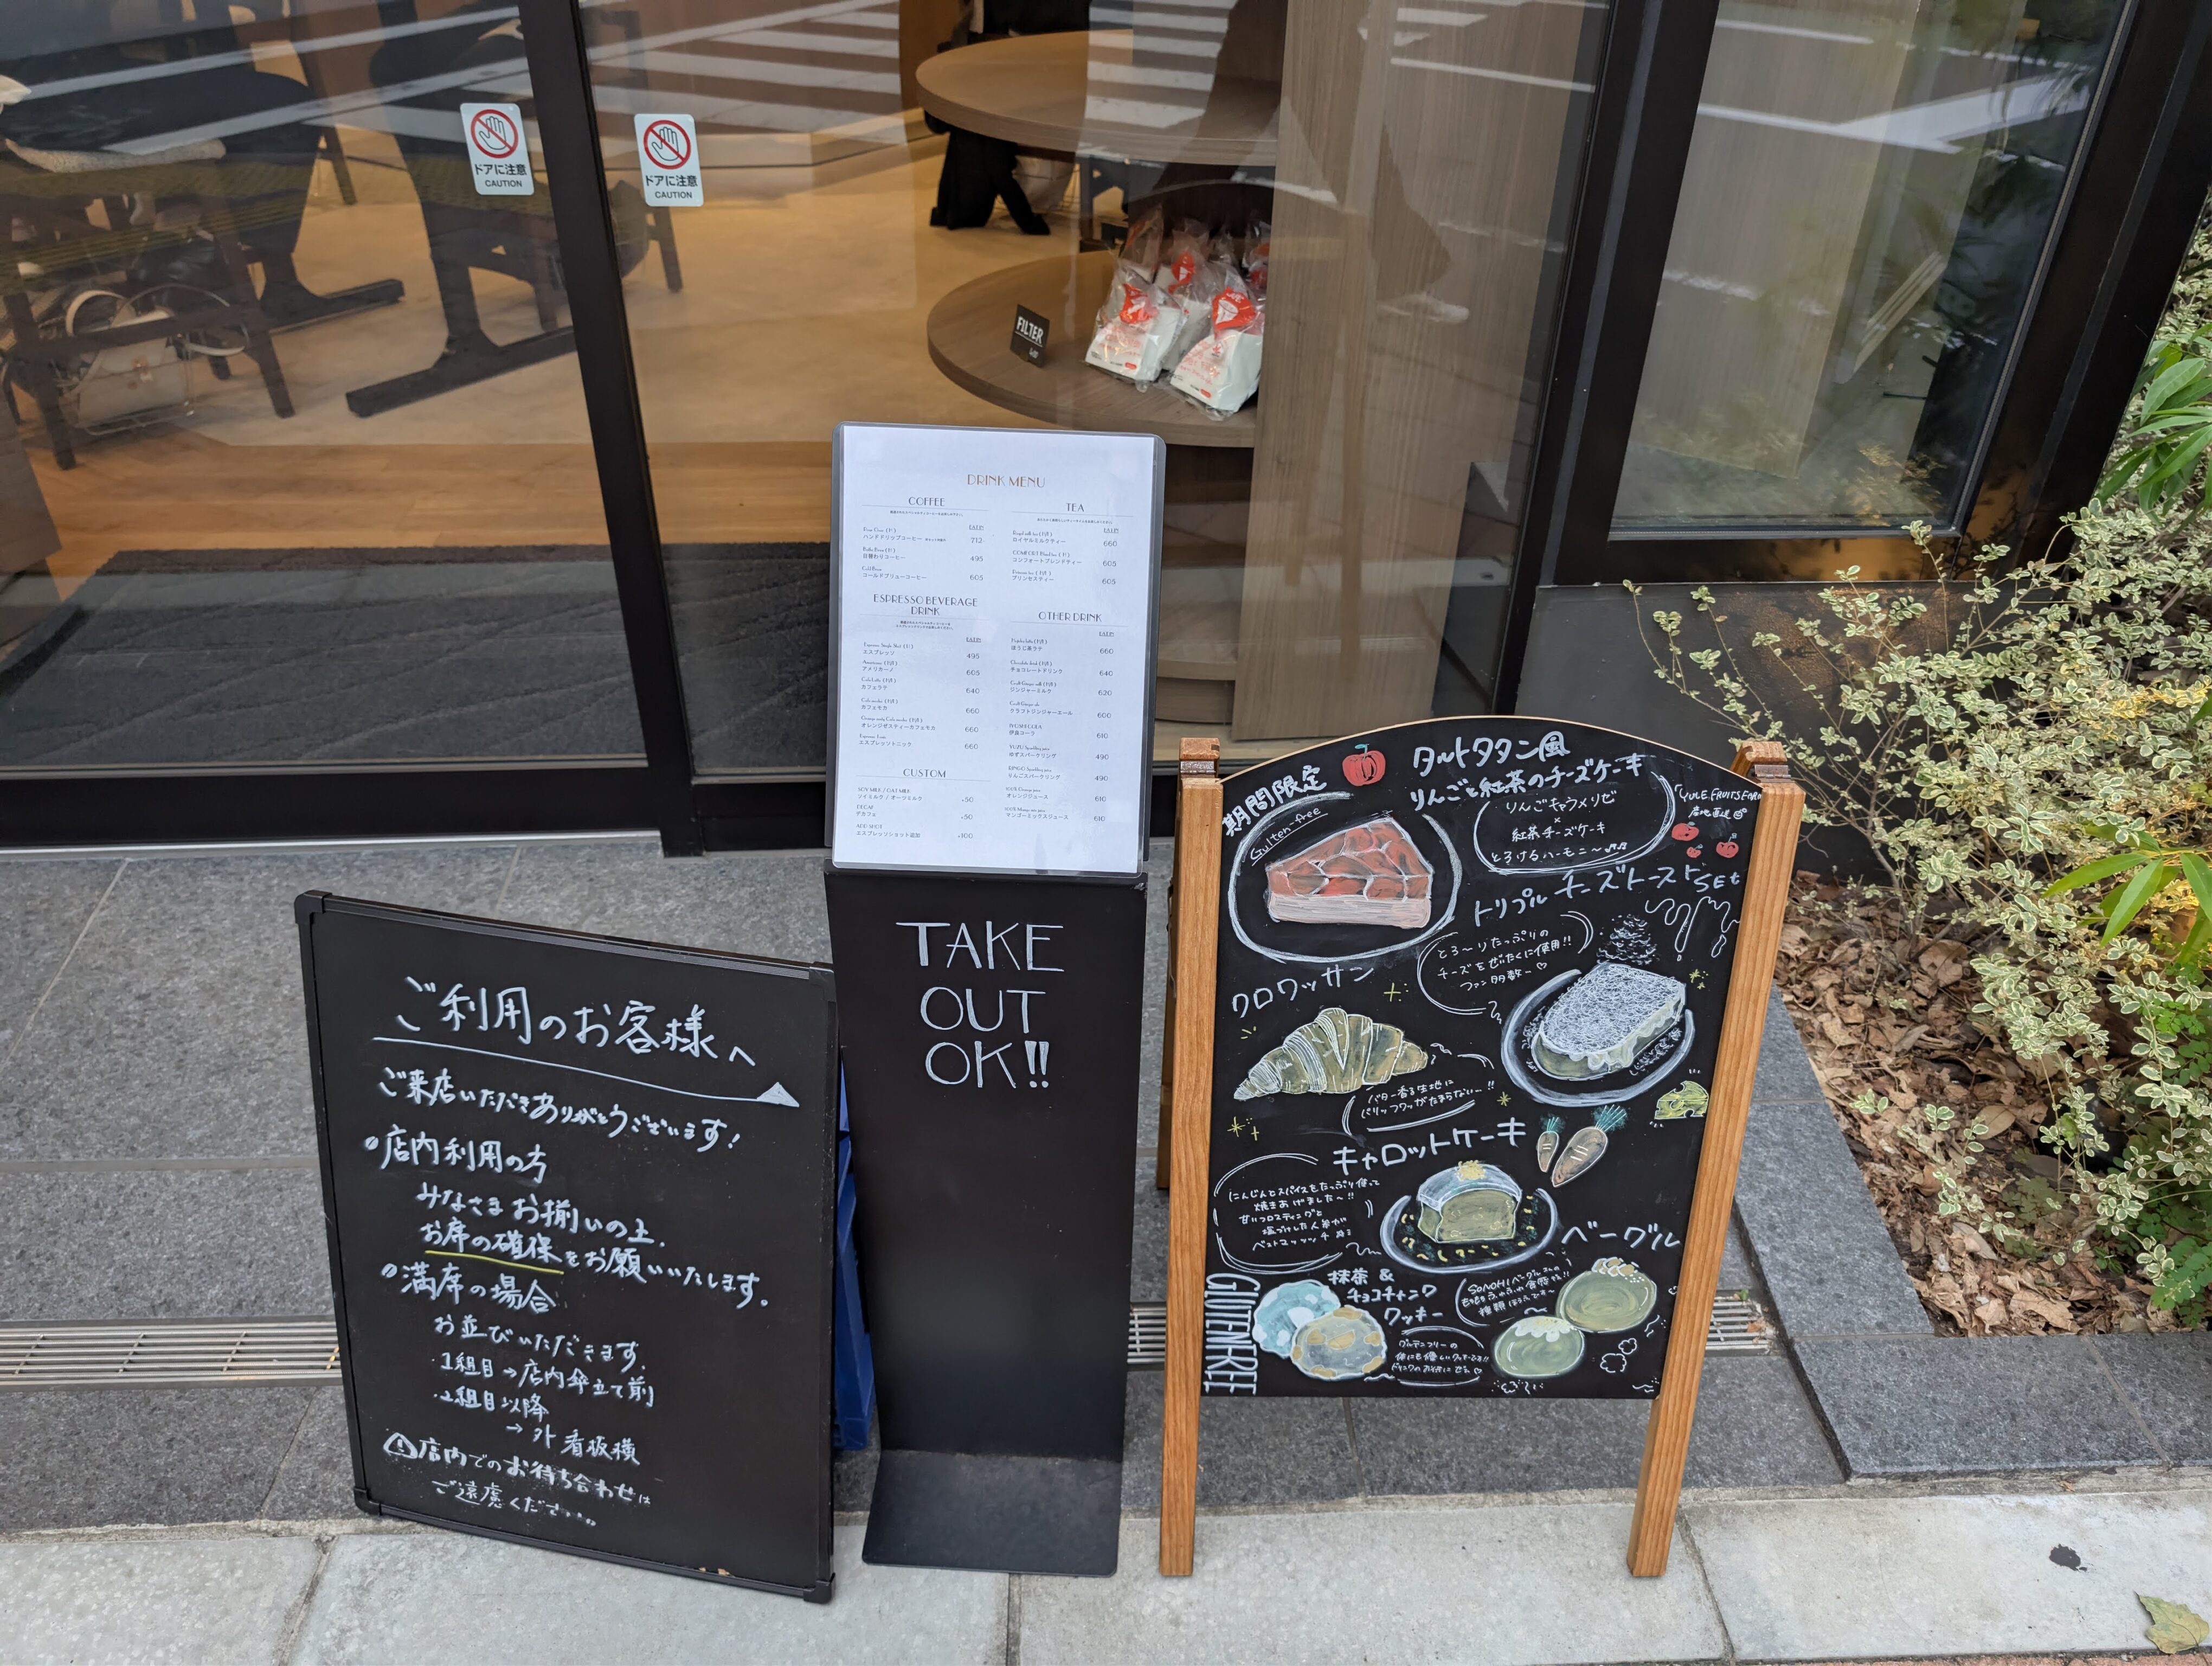 ドアに注意
CAUTION
ドアに注意
CAUTION
FILTER
DRINK MENU
COFFEE
ハンドドリップコーヒー
712-
日替わりコーヒー
495
Cold Brew
コールドブリューコーヒー
605
ESPRESSO BEVERAGE
DRINK
エスプレッソ
495
アメリカーノ
605
カフェラテ
640
カフェモカ
660
オレンジゼスティーカフェモカ
660
エスプレッソトニック
660
CUSTOM
SOY MILK / OAT MILK
ソイミルク / オーツミルク
+50
DECAF
デカフェ
+50
ADD SHOT
エスプレッソショット追加
+100
TEA
ロイヤルミルクティー
660
コンフォートブレンドティー
605
プリンセスティー
605
OTHER DRINK
ほうじ茶ラテ
660
チョコレートドリンク
640
ジンジャーミルク
620
クラフトジンジャーエール
600
伊良コーラ
610
ゆずスパークリング
490
りんごスパークリング
490
オレンジジュース
610
マンゴーミックスジュース
610
TAKE
OUT
OK!!
ご利用のお客様へ
ご来店いただきありがとうございます!
店内利用の方
みなさまお揃いの上、
お席の確保をお願いいたします。
満席の場合
お並びいただきます。
・1組目→店内傘立て前
・2組目以降
→外 看板横
店内でのお待ち合わせは
ご遠慮ください。
期間限定
タルトタタン風
りんごと紅茶のチーズケーキ
Gulten-free
りんごキャラメリゼ
×
紅茶チーズケーキ
とろけるハーモニ〜♫♬
産地直送
トリプルチーズトーストSet
とろ〜りたっぷりの
チーズをぜいたくに使用!!
ファン多数〜♡
クロワッサン
バター香る生地に
パリッフワッがたまらない〜!!
キャロットケーキ
にんじんとスパイスをたっぷり使って
焼きあげました〜!!
甘いフロスティングと
ベーグル
抹茶 &
チョコチャンク
クッキー
GLUTEN-FREE
グルテンフリーの
体にも優しいクッキーです!!